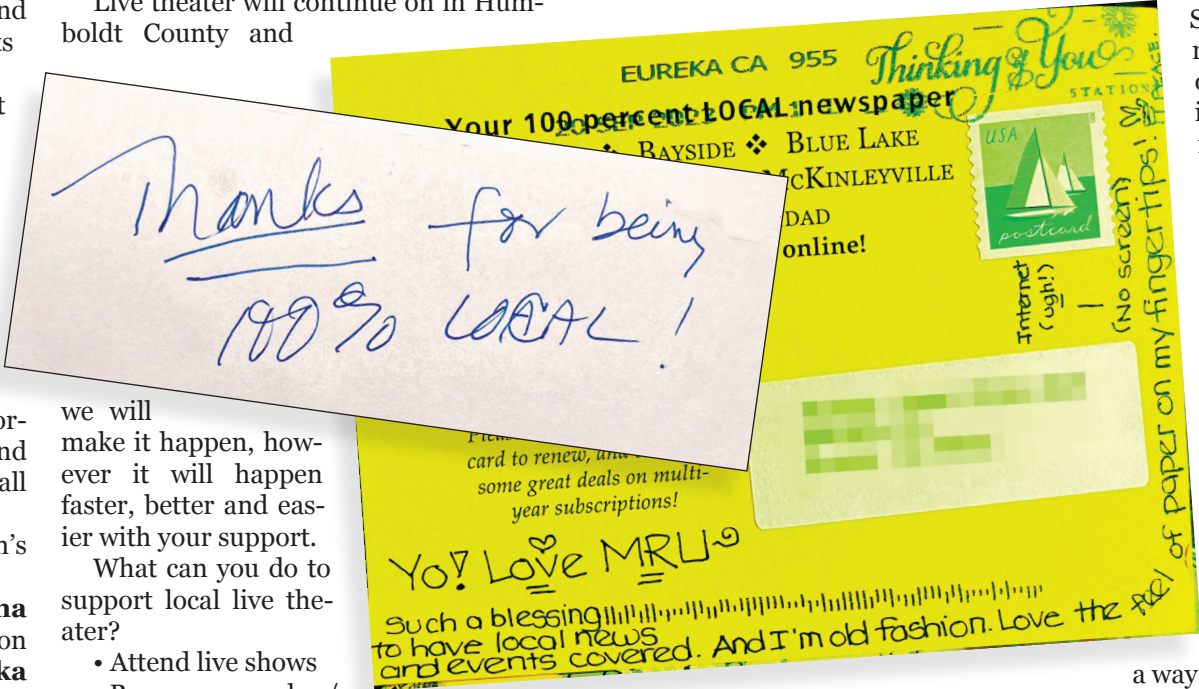 nd
ts
t
or-
nd
all
n's
na
on
ka
Live theater will continue on in Hum-
boldt County and
we will
make it happen, how-
ever it will happen
faster, better and eas-
ier with your support.
What can you do to
support local live the-
ater?
• Attend live shows
Thanks for being
100% LOCAL!
EUREKA CA 955
Thinking of You
STATION
20 SEP
Your 100 percent LOCAL newspaper
❖ BAYSIDE ❖ BLUE LAKE
McKINLEYVILLE
DAD
online!
USA
postcard
card to renew, and
some great deals on multi-
year subscriptions!
Yo! Love MRU
Such a blessing
to have local news
and events covered. And I'm old fashion. Love the feel
of paper on my fingertips! PEACE.
(No screen)
Internet
(ugh!)
a way